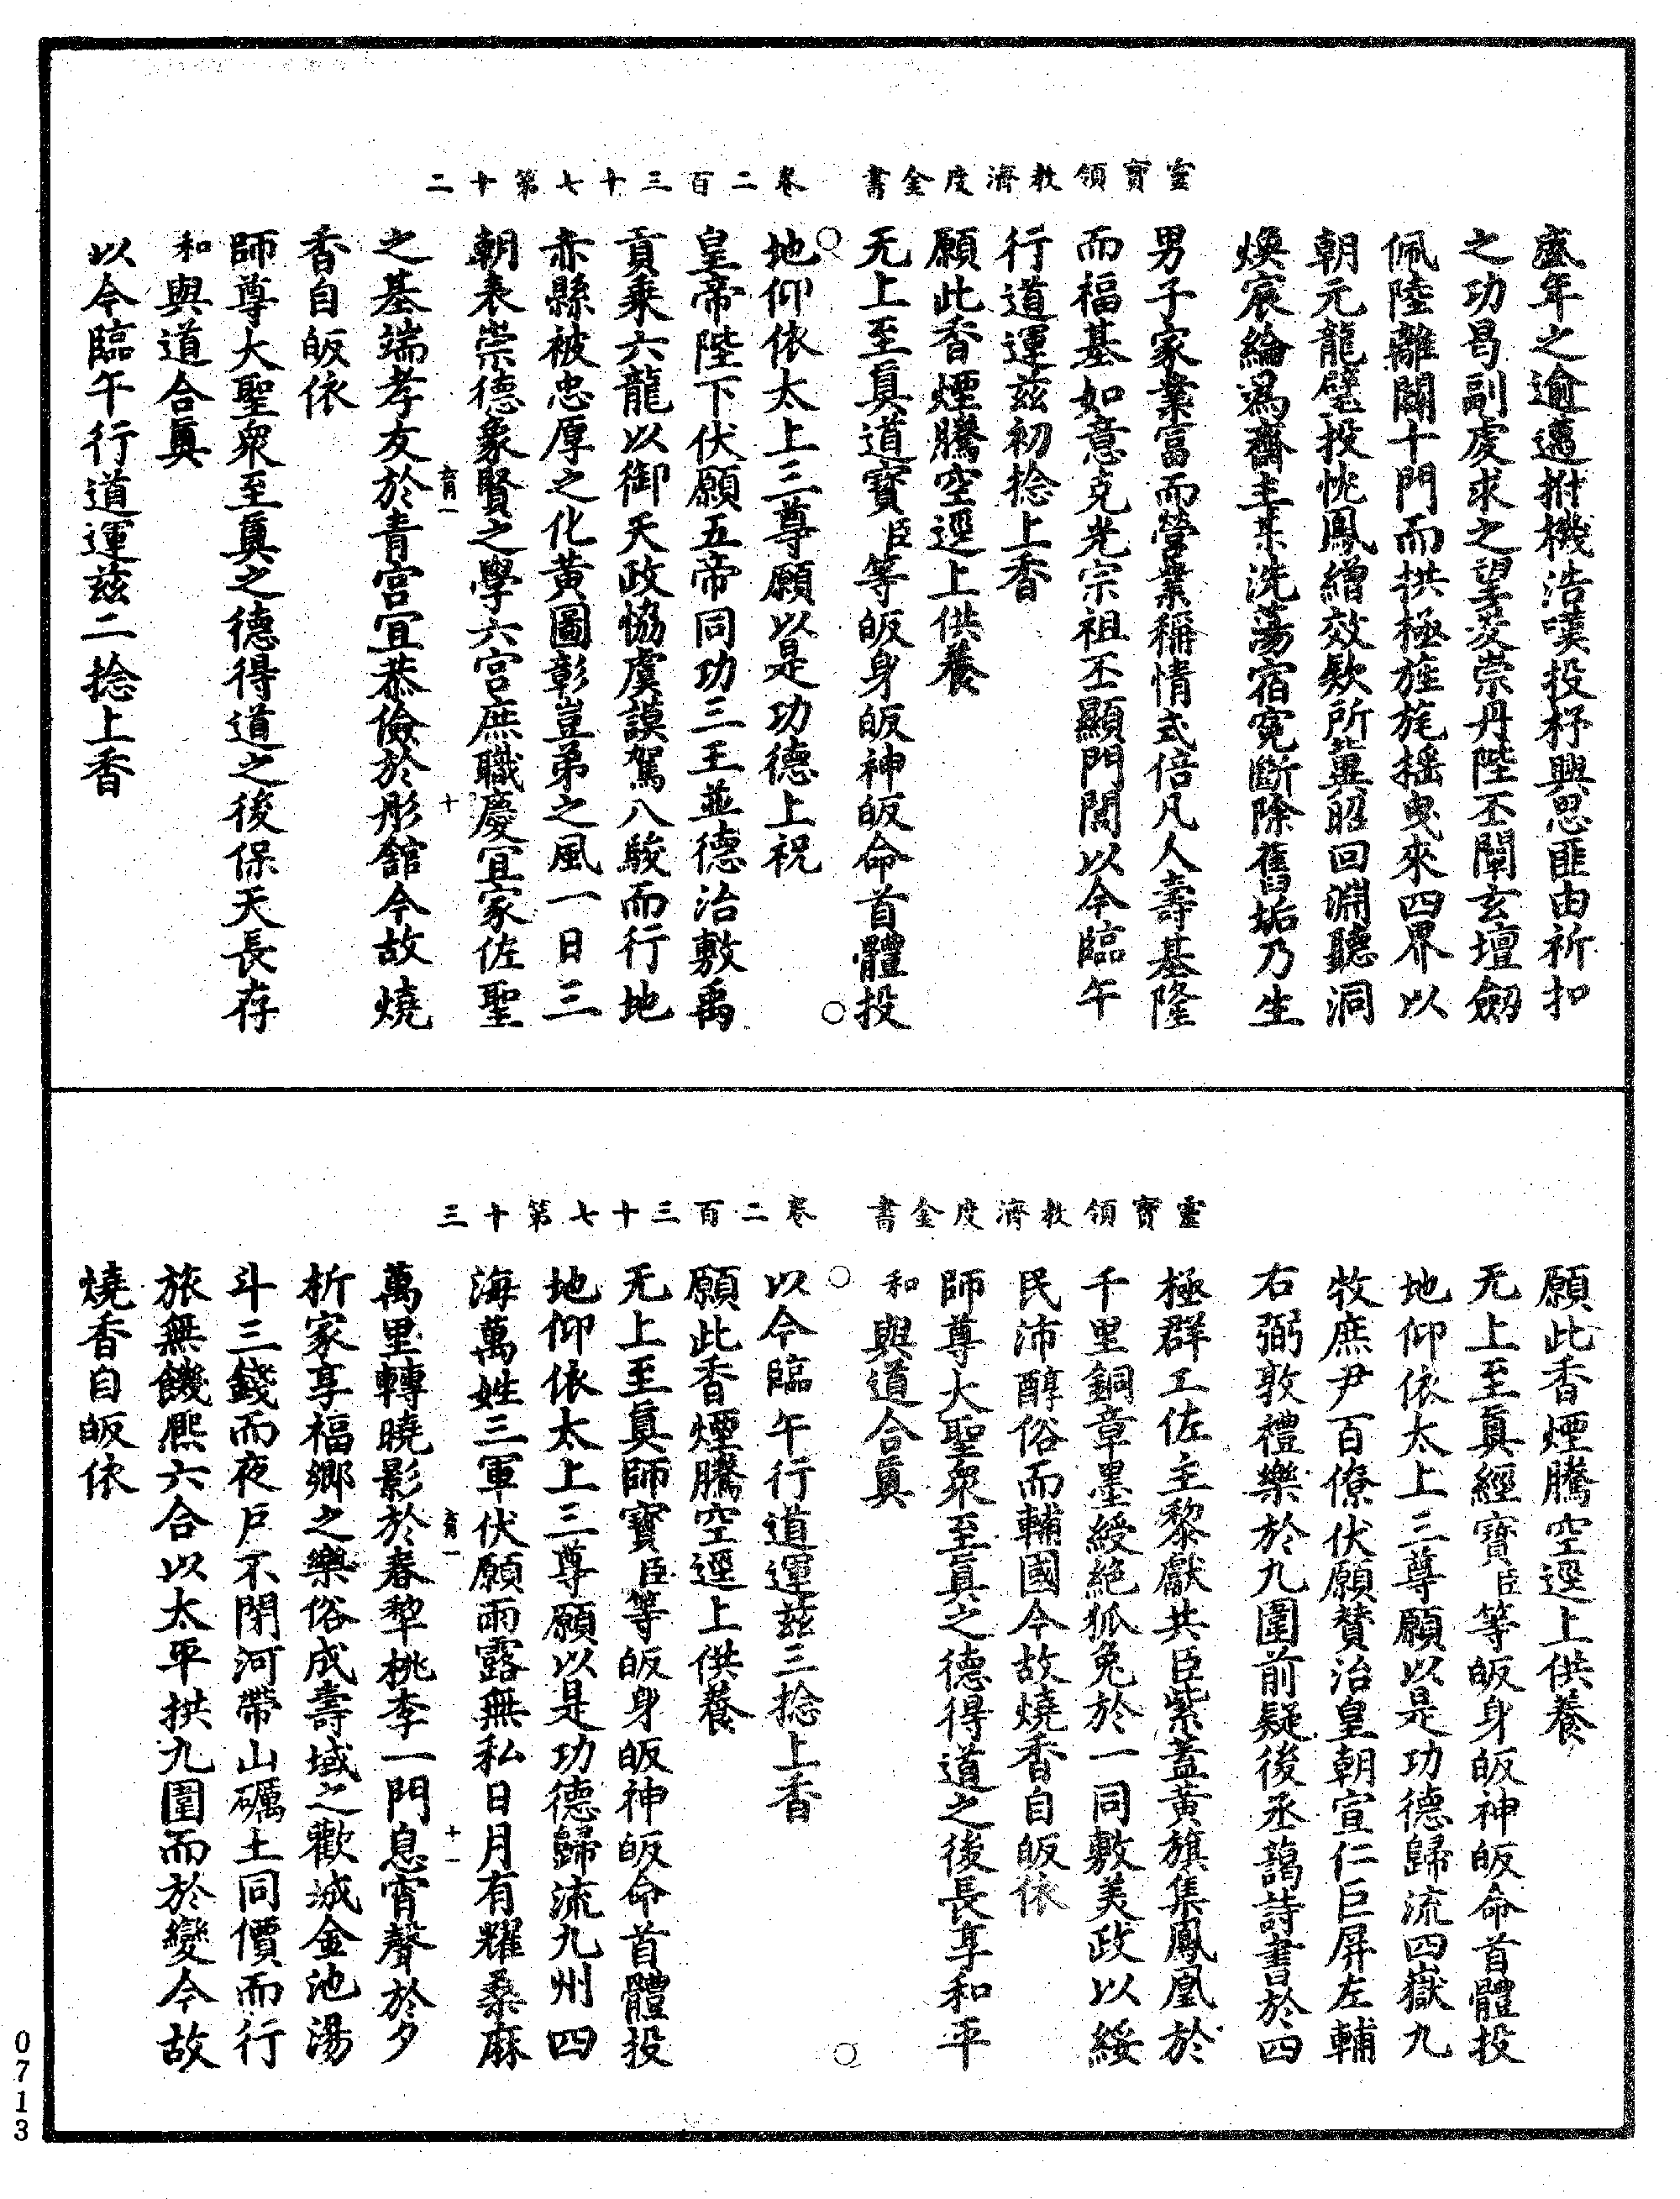 靈寶領教濟度金書 卷二百三十七第十二
盛年之逾邁拊機浩嘆投杼興思匪由祈扣
之功曷副虔求之望爰崇丹陛丕闡玄壇劒
佩陸離闢十門而拱極旌旄搖曳來四界以
朝元龍璧投忱鳳繒效欵所兾昭回淵聽洞
煥宸綸爲齋主某洗蕩宿寃斷除舊垢乃生
男子家業富而營業稱情式倍凡人壽基隆
而福基如意克光宗祖丕顯門閭以今臨午
行道運兹初捻上香
願此香煙騰空逕上供養
无上至眞道寶臣等皈身皈神皈命首體投
地仰依太上三尊願以是功德上祝
皇帝陛下伏願五帝同功三王並德治敷禹
貢乗六龍以御天政恊虞謨駕八駿而行地
赤縣被忠厚之化黃圖彰豈弟之風一日三
朝表崇德象賢之學六宮庶職慶宜家佐聖
之基端孝友於青宮宜恭儉於彤館今故燒
香自皈依
師尊大聖衆至眞之德得道之後保天長存
和與道合眞
以今臨午行道運兹二捻上香
十
靈寶領教濟度金書 卷二百三十七第十三
願此香煙騰空逕上供養
无上至眞經寶臣等皈身皈神皈命首體投
地仰依太上三尊願以是功德歸流四嶽九
牧庶尹百僚伏願賛治皇朝宣仁巨屏左輔
右弼敦禮樂於九圍前疑後丞藹詩書於四
極群工佐主黎獻共臣紫蓋黃旗集鳳凰於
千里銅章墨綬絶狐兔於一同敷美政以綏
民沛醇俗而輔國今故燒香自皈依
師尊大聖衆至眞之德得道之後長享和平
和與道合眞
以今臨午行道運兹三捻上香
願此香煙騰空逕上供養
无上至眞師寶臣等皈身皈神皈命首體投
地仰依太上三尊願以是功德歸流九州四
海萬姓三軍伏願雨露無私日月有耀桑麻
萬里轉曉影於春犂桃李一門息宵聲於夕
析家享福鄉之樂俗成壽域之歡城金池湯
斗三錢而夜戶不閉河帶山礪土同價而行
旅無饑熈六合以太平拱九圍而於變今故
燒香自皈依
十一
0713